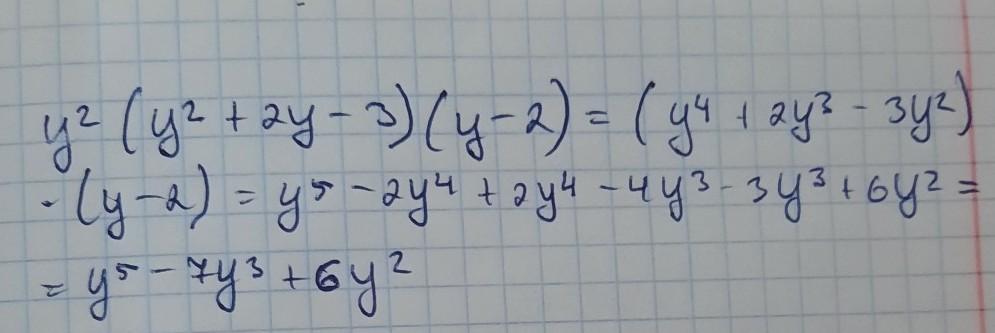 y² (y² + 2y - 3)(y - 2) = (y⁴ + 2y³ - 3y²)
· (y - 2) = y⁵ - 2y⁴ + 2y⁴ - 4y³ - 3y³ + 6y² =
= y⁵ - 7y³ + 6y²